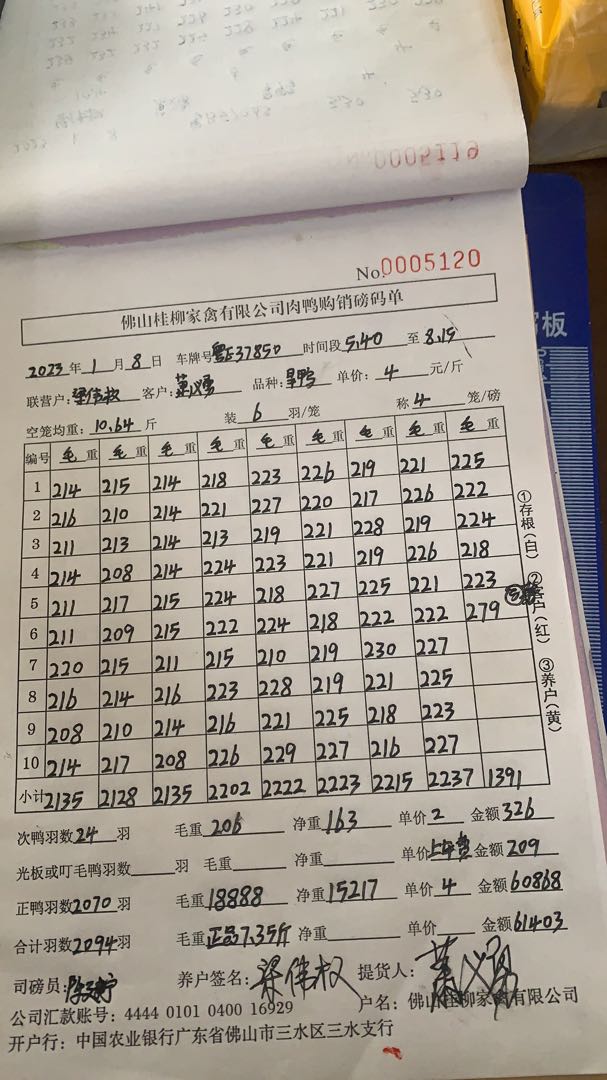 0005119
No.0005120
佛山桂柳家禽有限公司肉鸭购销磅码单
2023年1月8日 车牌号粤E37850 时间段5.40至8.15
联营户:梁伟权 客户: 品种:旱鸭 单价:4元/斤
空笼均重:10.64斤 装6羽/笼 称4笼/磅
编号 毛重 毛重 毛重 毛重 毛重 毛重 毛重 毛重 毛重
1 214 215 214 218 223 226 219 221 225
2 216 210 214 221 227 220 217 226 222
3 211 213 214 213 219 221 228 219 224
4 214 208 214 224 223 221 219 226 218
5 211 217 215 224 218 227 225 221 223
6 211 209 215 222 224 218 222 222 279
7 220 215 211 215 210 219 230 227
8 216 214 216 223 228 219 221 225
9 208 210 214 216 221 225 218 223
10 214 217 208 226 229 227 216 227
小计 2135 2128 2135 2202 2222 2223 2215 2237 1391
①存根(白) ②客户(红) ③养户(黄)
次鸭羽数24羽 毛重206 净重163 单价2 金额326
光板或叮毛鸭羽数 羽 毛重 净重 单价 金额209
正鸭羽数2070羽 毛重18888 净重15217 单价4 金额60868
合计羽数2094羽 毛重正品7.35斤 净重 单价 金额61403
司磅员: 养户签名:梁伟权 提货人:
公司汇款账号:4444 0101 0400 16929 户名:佛山桂柳家禽有限公司
开户行:中国农业银行广东省佛山市三水区三水支行
板